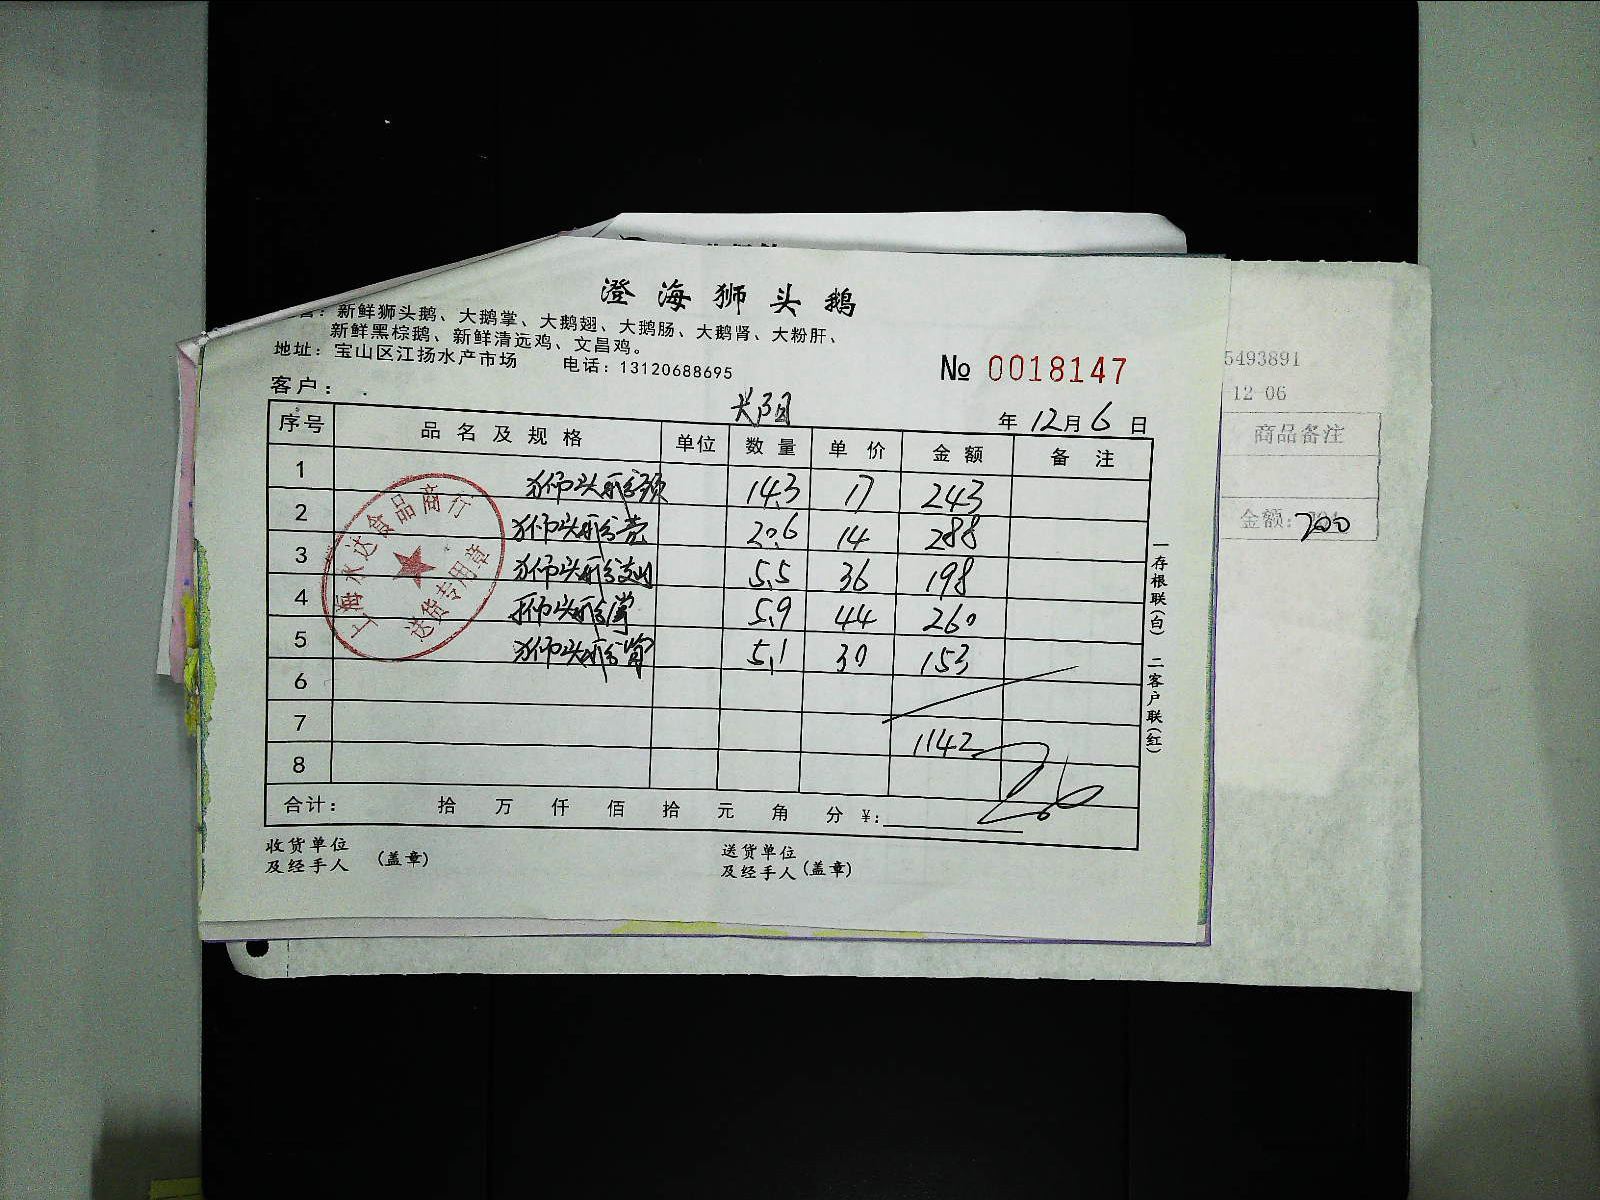 澄海狮头鹅
营：新鲜狮头鹅、大鹅掌、大鹅翅、大鹅肠、大鹅肾、大粉肝、
新鲜黑棕鹅、新鲜清远鸡、文昌鸡。
地址：宝山区江扬水产市场 电话：13120688695
№ 0018147
客户：
长阳
年 12月 6日
序号 品名及规格 单位 数量 单价 金额 备注
1 狮头鹅头 14.3 17 243
2 狮头鹅壳 20.6 14 288
3 狮头鹅翅 5.5 36 198
4 狮头鹅掌 5.9 44 260
5 狮头鹅肾 5.1 30 153
6
7 1142
8
合计： 拾 万 仟 佰 拾 元 角 分 ¥：
收货单位
及经手人 （盖章）
送货单位
及经手人（盖章）
一存根联（白） 二客户联（红）
上海水达食品商行
送货专用章
5493891
12-06
商品备注
金额：700